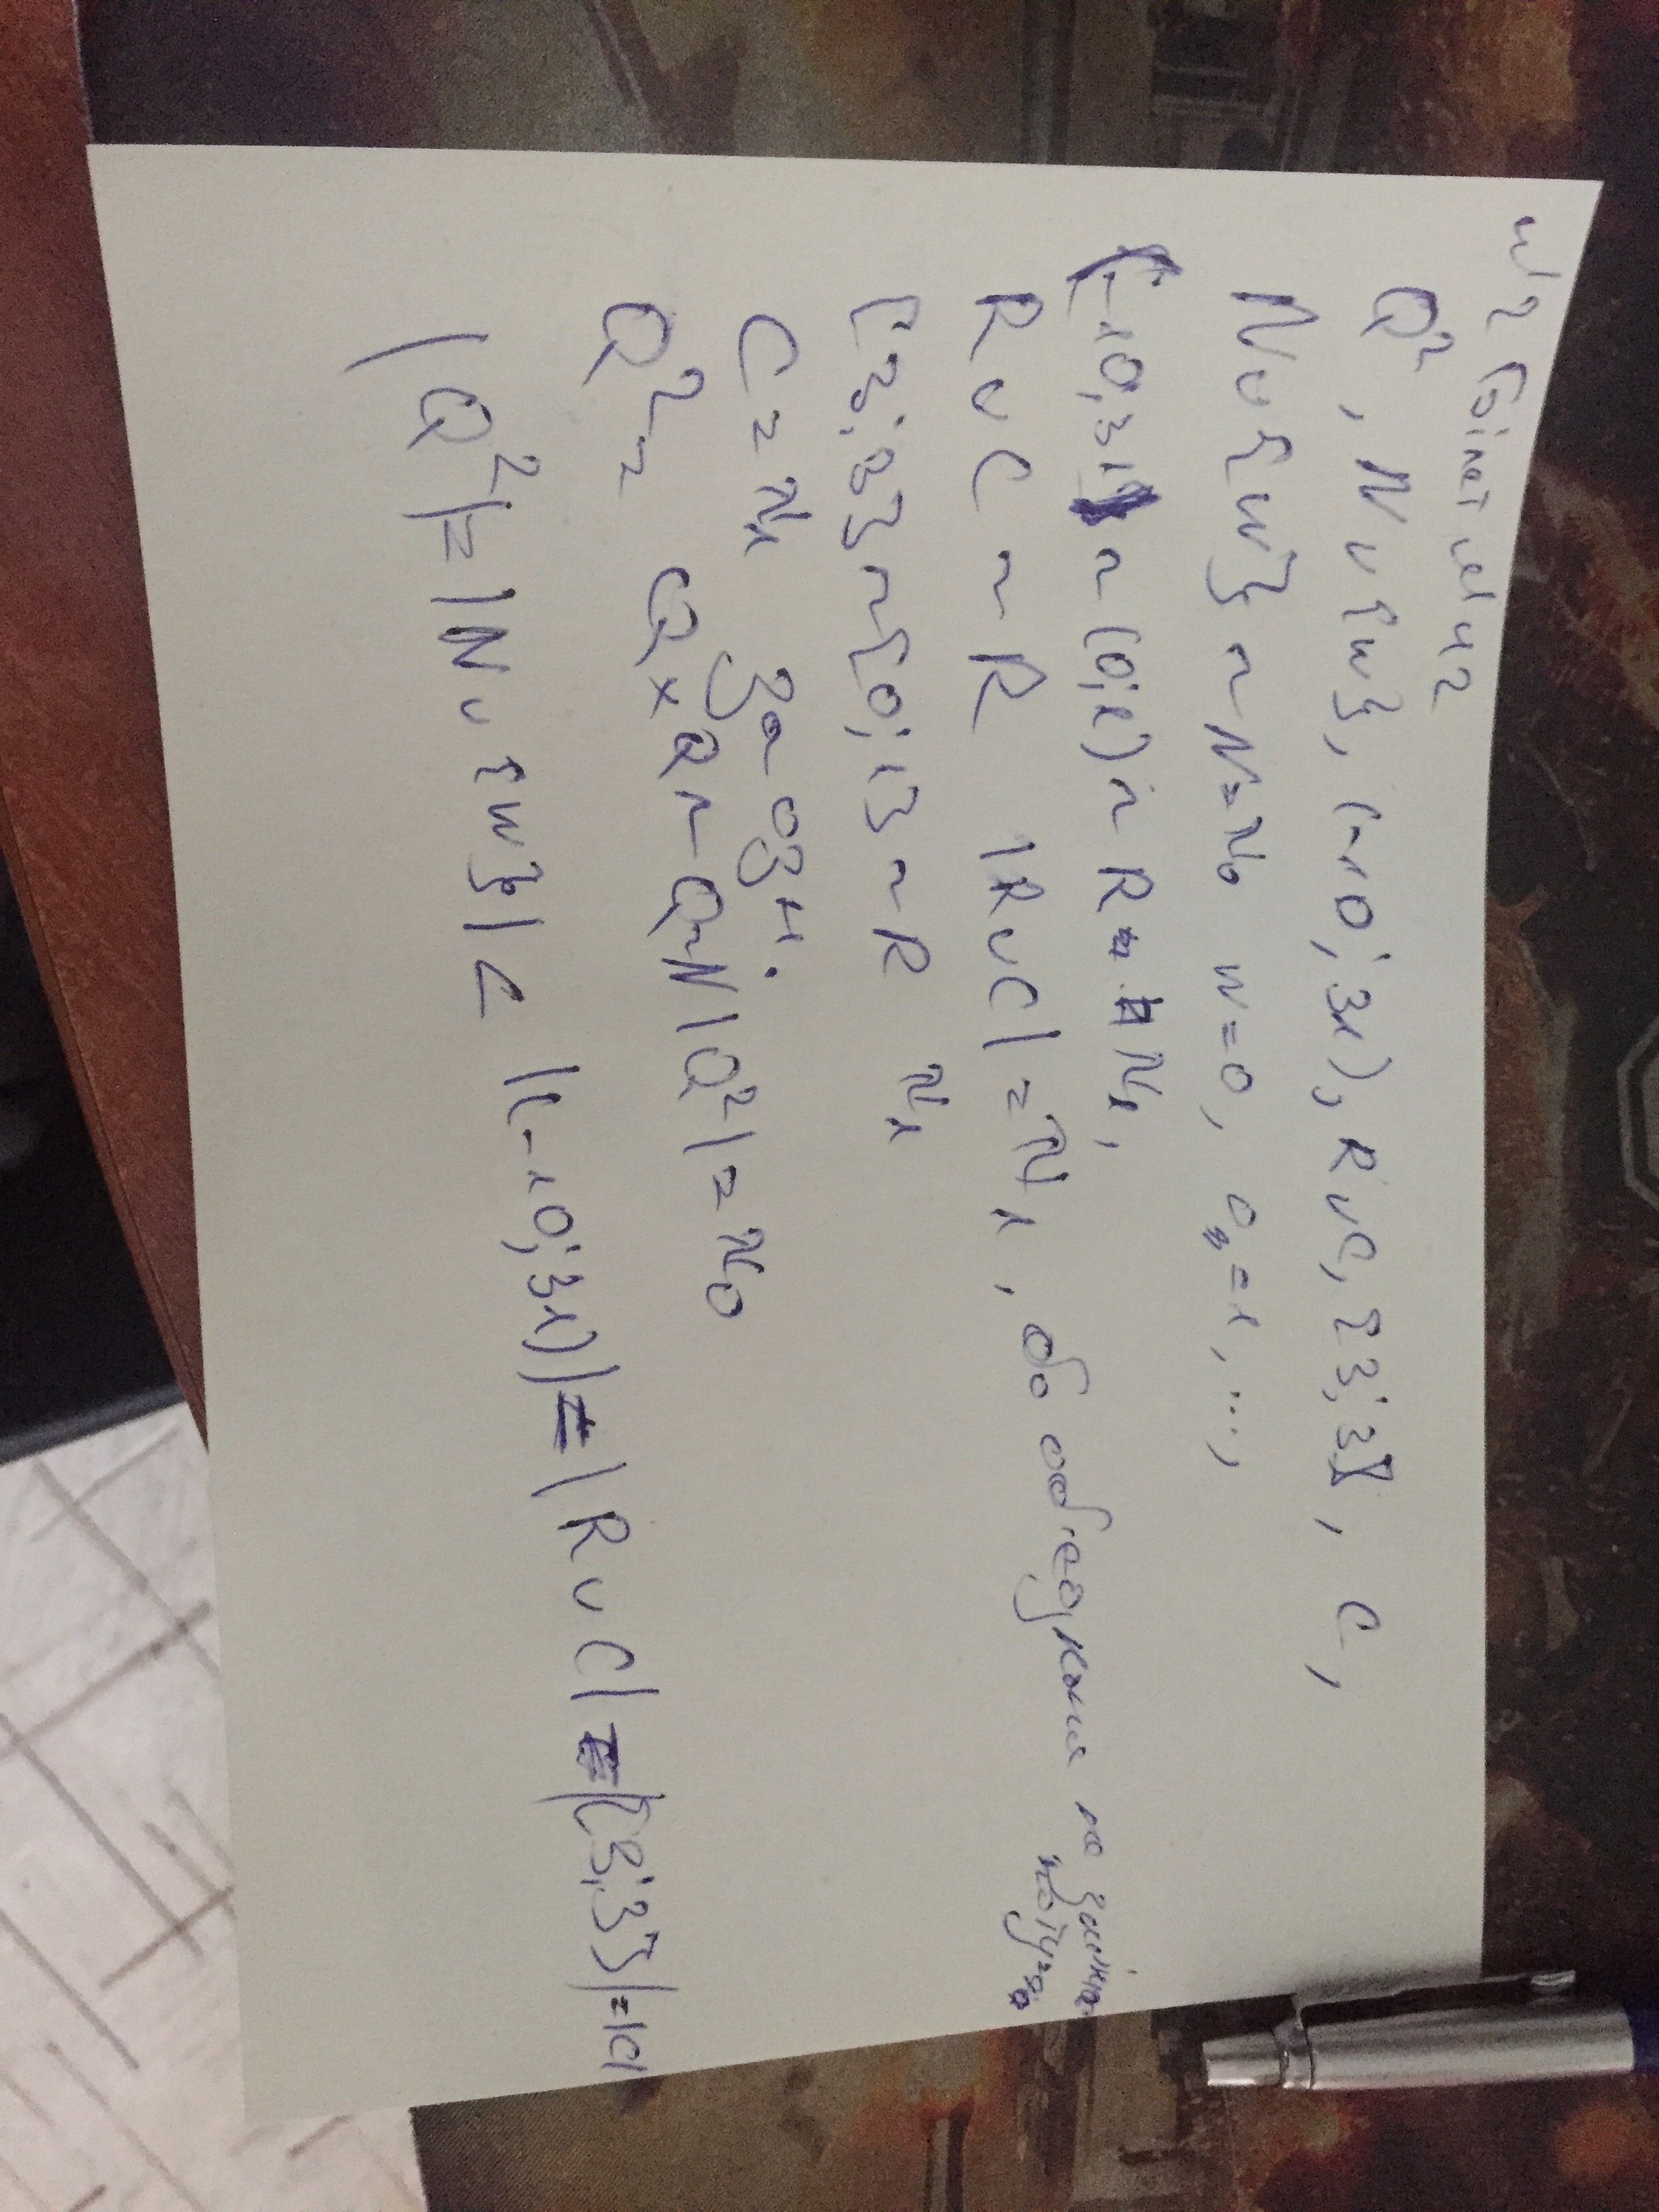 №2 Білет №42
Q², N∪{w}, (-10; 31), R∪C, [3; 3], C,
N∪{w} ~ N = ℵ₀ w=0, 0=1, ...,
(-10; 31) ~ (0; 1) ~ R ℵ₁,
R∪C ~ R |R∪C| = ℵ₁, бо об'єднання не змінює потужно
[3; 3] ~ [0; 1] ~ R ℵ₁
C = ℵ₁ за озн.
Q² = Q×Q ~ Q~N |Q²| = ℵ₀
|Q²| = |N∪{w}| < |(-10; 31)| = |R∪C| = |[3; 3]| = |C|